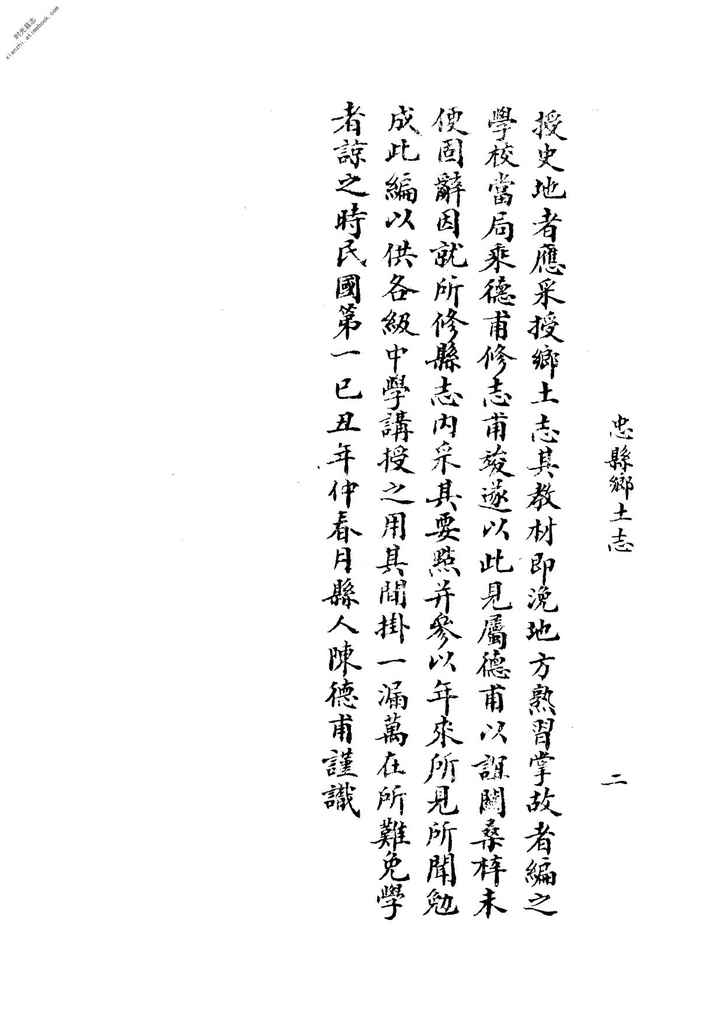 忠縣鄉土志
二
授史地者應采授鄉土志其教材即浼地方熟習掌故者編之
學校當局乘德甫修志甫竣遂以此見屬德甫以誼關桑梓未
便固辭因就所修縣志內采其要點并參以年來所見所聞勉
成此編以供各級中學講授之用其間掛一漏萬在所難免學
者諒之時民國第一已丑年仲春月縣人陳德甫謹識
时光县志
xianzhi.atimebook.com